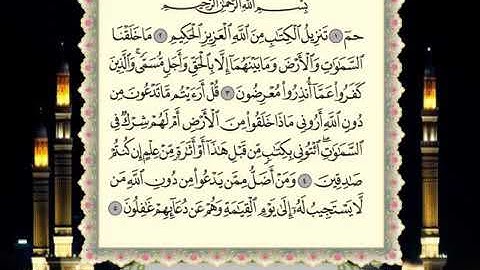 بِسْمِ اللَّهِ الرَّحْمَٰنِ الرَّحِيمِ
حمٓ ١ تَنزِيلُ الْكِتَابِ مِنَ اللَّهِ الْعَزِيزِ الْحَكِيمِ ٢ مَا خَلَقْنَا
السَّمَاوَاتِ وَالْأَرْضَ وَمَا بَيْنَهُمَا إِلَّا بِالْحَقِّ وَأَجَلٍ مُّسَمًّى ۚ وَالَّذِينَ
كَفَرُوا عَمَّا أُنذِرُوا مُعْرِضُونَ ٣ قُلْ أَرَأَيْتُم مَّا تَدْعُونَ مِن
دُونِ اللَّهِ أَرُونِي مَاذَا خَلَقُوا مِنَ الْأَرْضِ أَمْ لَهُمْ شِرْكٌ فِي
السَّمَاوَاتِ ۖ ائْتُونِي بِكِتَابٍ مِّن قَبْلِ هَٰذَا أَوْ أَثَارَةٍ مِّنْ عِلْمٍ إِن كُنتُمْ
صَادِقِينَ ٤ وَمَنْ أَضَلُّ مِمَّن يَدْعُو مِن دُونِ اللَّهِ مَن
لَّا يَسْتَجِيبُ لَهُ إِلَىٰ يَوْمِ الْقِيَامَةِ وَهُمْ عَن دُعَائِهِمْ غَافِلُونَ ٥